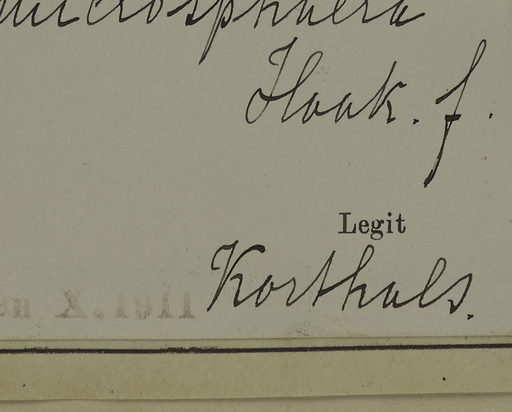 microsphaera
Hook. f.
Legit
Korthals.
X. 1911